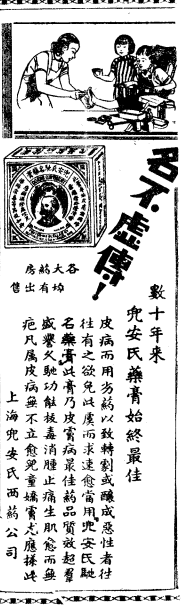 名不虛傳!
數十年來
兜安氏藥膏始終最佳
皮病而用劣药以致轉劇或釀成惡性者往
往有之欲免此虞而求速愈當用兜安氏馳
名藥膏此膏乃皮膚病最佳药品質效超羣
盛譽久馳功能殺毒消腫止痛生肌愈而無
疤凡属皮病無不立愈兒童嬌膚尤應採此
各大药房
均有出售
上海兜安氏西药公司